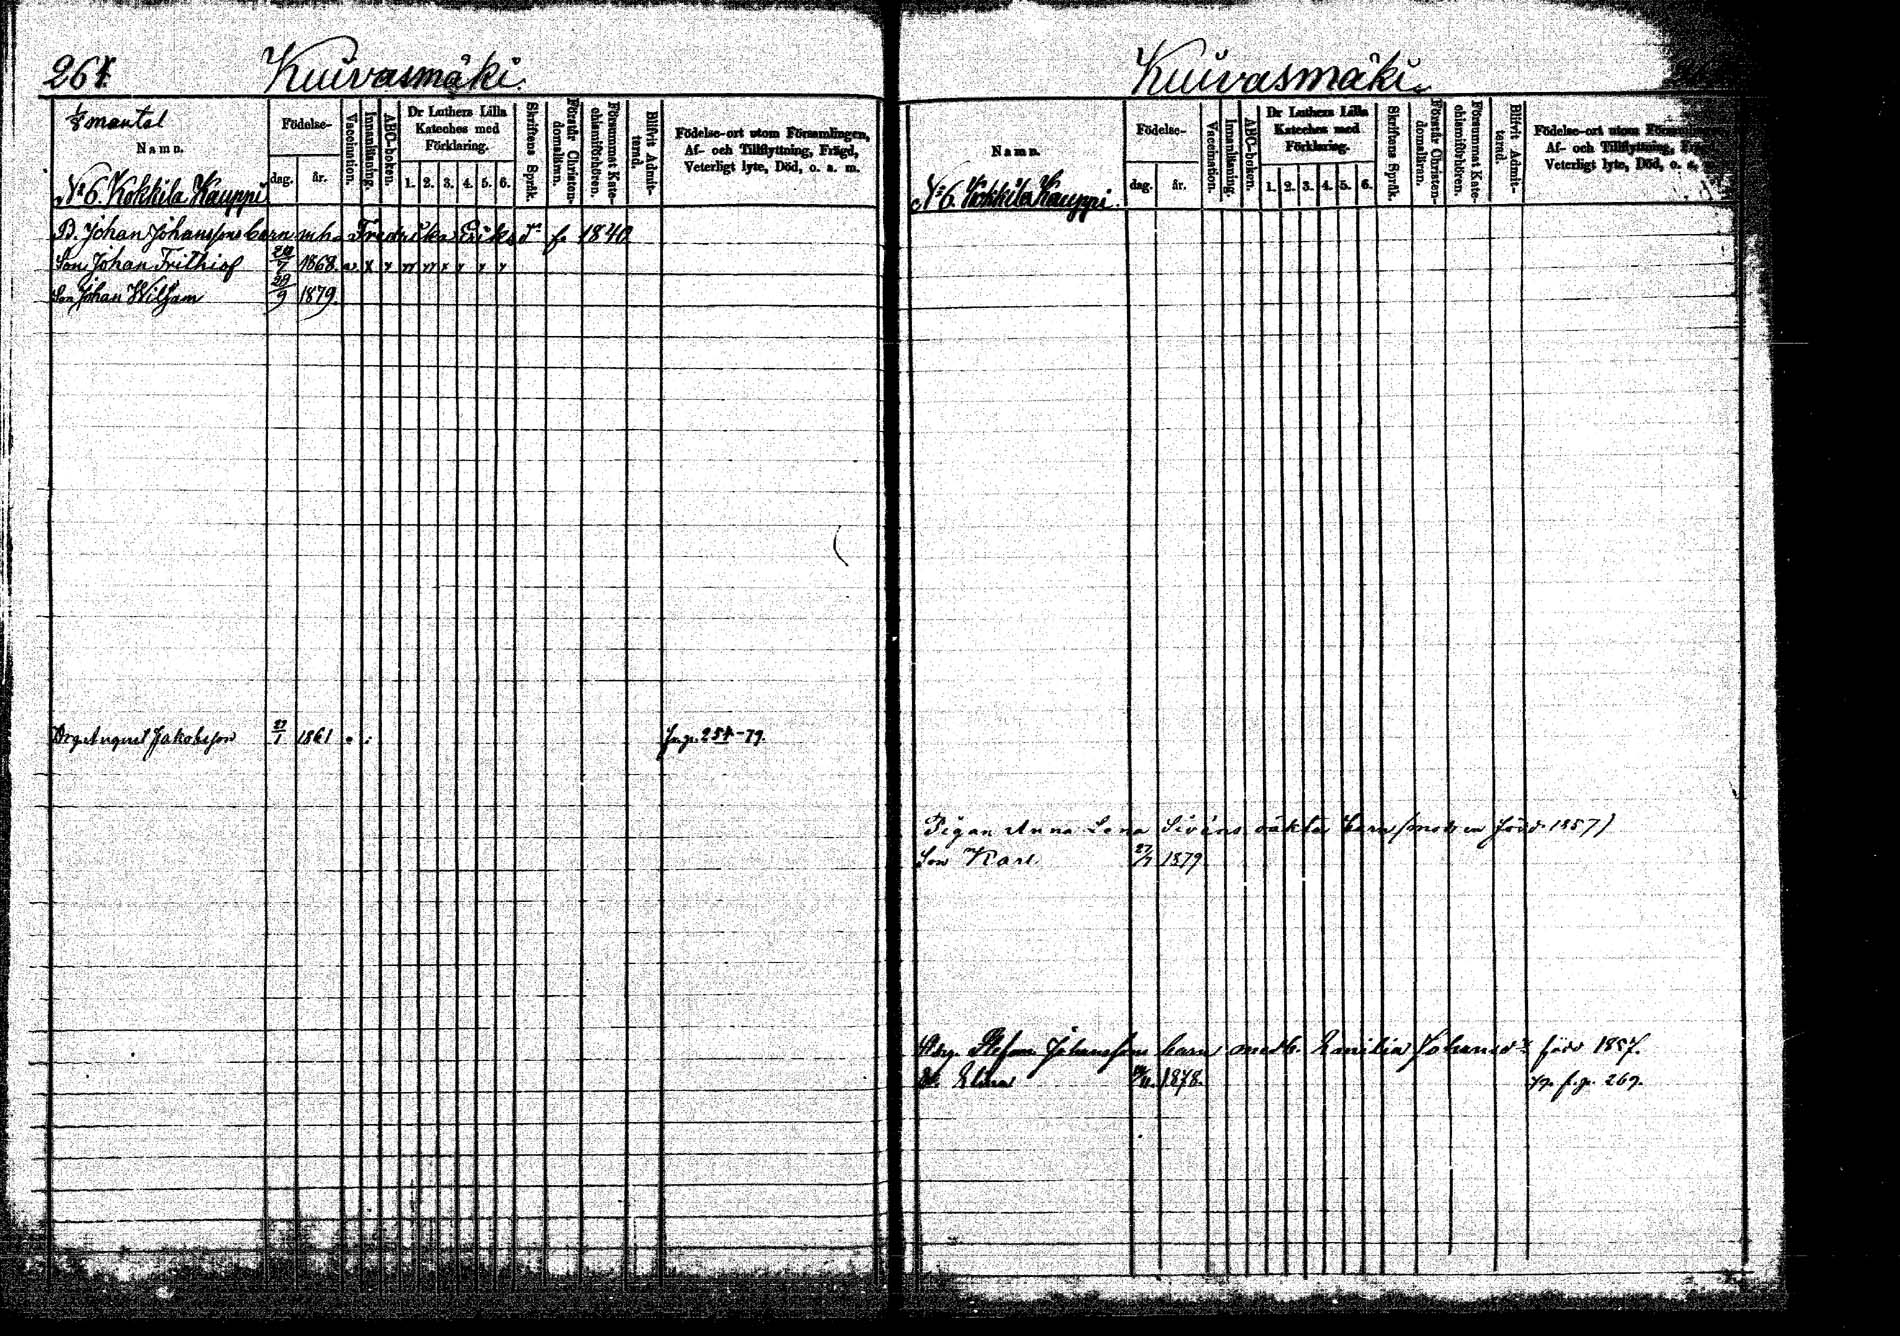 261
Kuivasmäki.
1/8 mantal
Namn.
Födelse-
dag.
år.
Vaccination.
Innanläsning.
ABC-boken.
Dr Luthers Lilla Kateches med Förklaring.
1. 2. 3. 4. 5. 6.
Skriftens Språk.
Förstår Christendomsläran.
Försummat Katechismiförhören.
Blifvit Admitterad.
Födelse-ort utom Församlingen,
Af- och Tillflyttning, Frägd,
Veterligt lyte, Död, o. a. m.
No 6. Kokkila Kauppi
B. Johan Johanssons barn m h. Fredrika Eriksdr f. 1840
Son Johan Frithiof 1868.
Son Johan Wiljam 29/9 1879.
Drg. August Jakobsson 27/1 1861 fr. p. 254 -79.
Kuivasmäki.
Namn.
Födelse-
dag.
år.
Vaccination.
Innanläsning.
ABC-boken.
Dr Luthers Lilla Kateches med Förklaring.
1. 2. 3. 4. 5. 6.
Skriftens Språk.
Förstår Christendomsläran.
Försummat Katechismiförhören.
Blifvit Admitterad.
Födelse-ort utom Församlingen,
Af- och Tillflyttning, Frägd,
Veterligt lyte, Död, o. a. m.
No 6. Kokkila Kauppi.
Pigan Anna Lena Sivéns oäkta barn (modren född 1857)
Son Karl 1879
Stefan Johanssons barn med h. Emilia Johansdr född 1857.
Elina 1878. 79. f. p. 269.